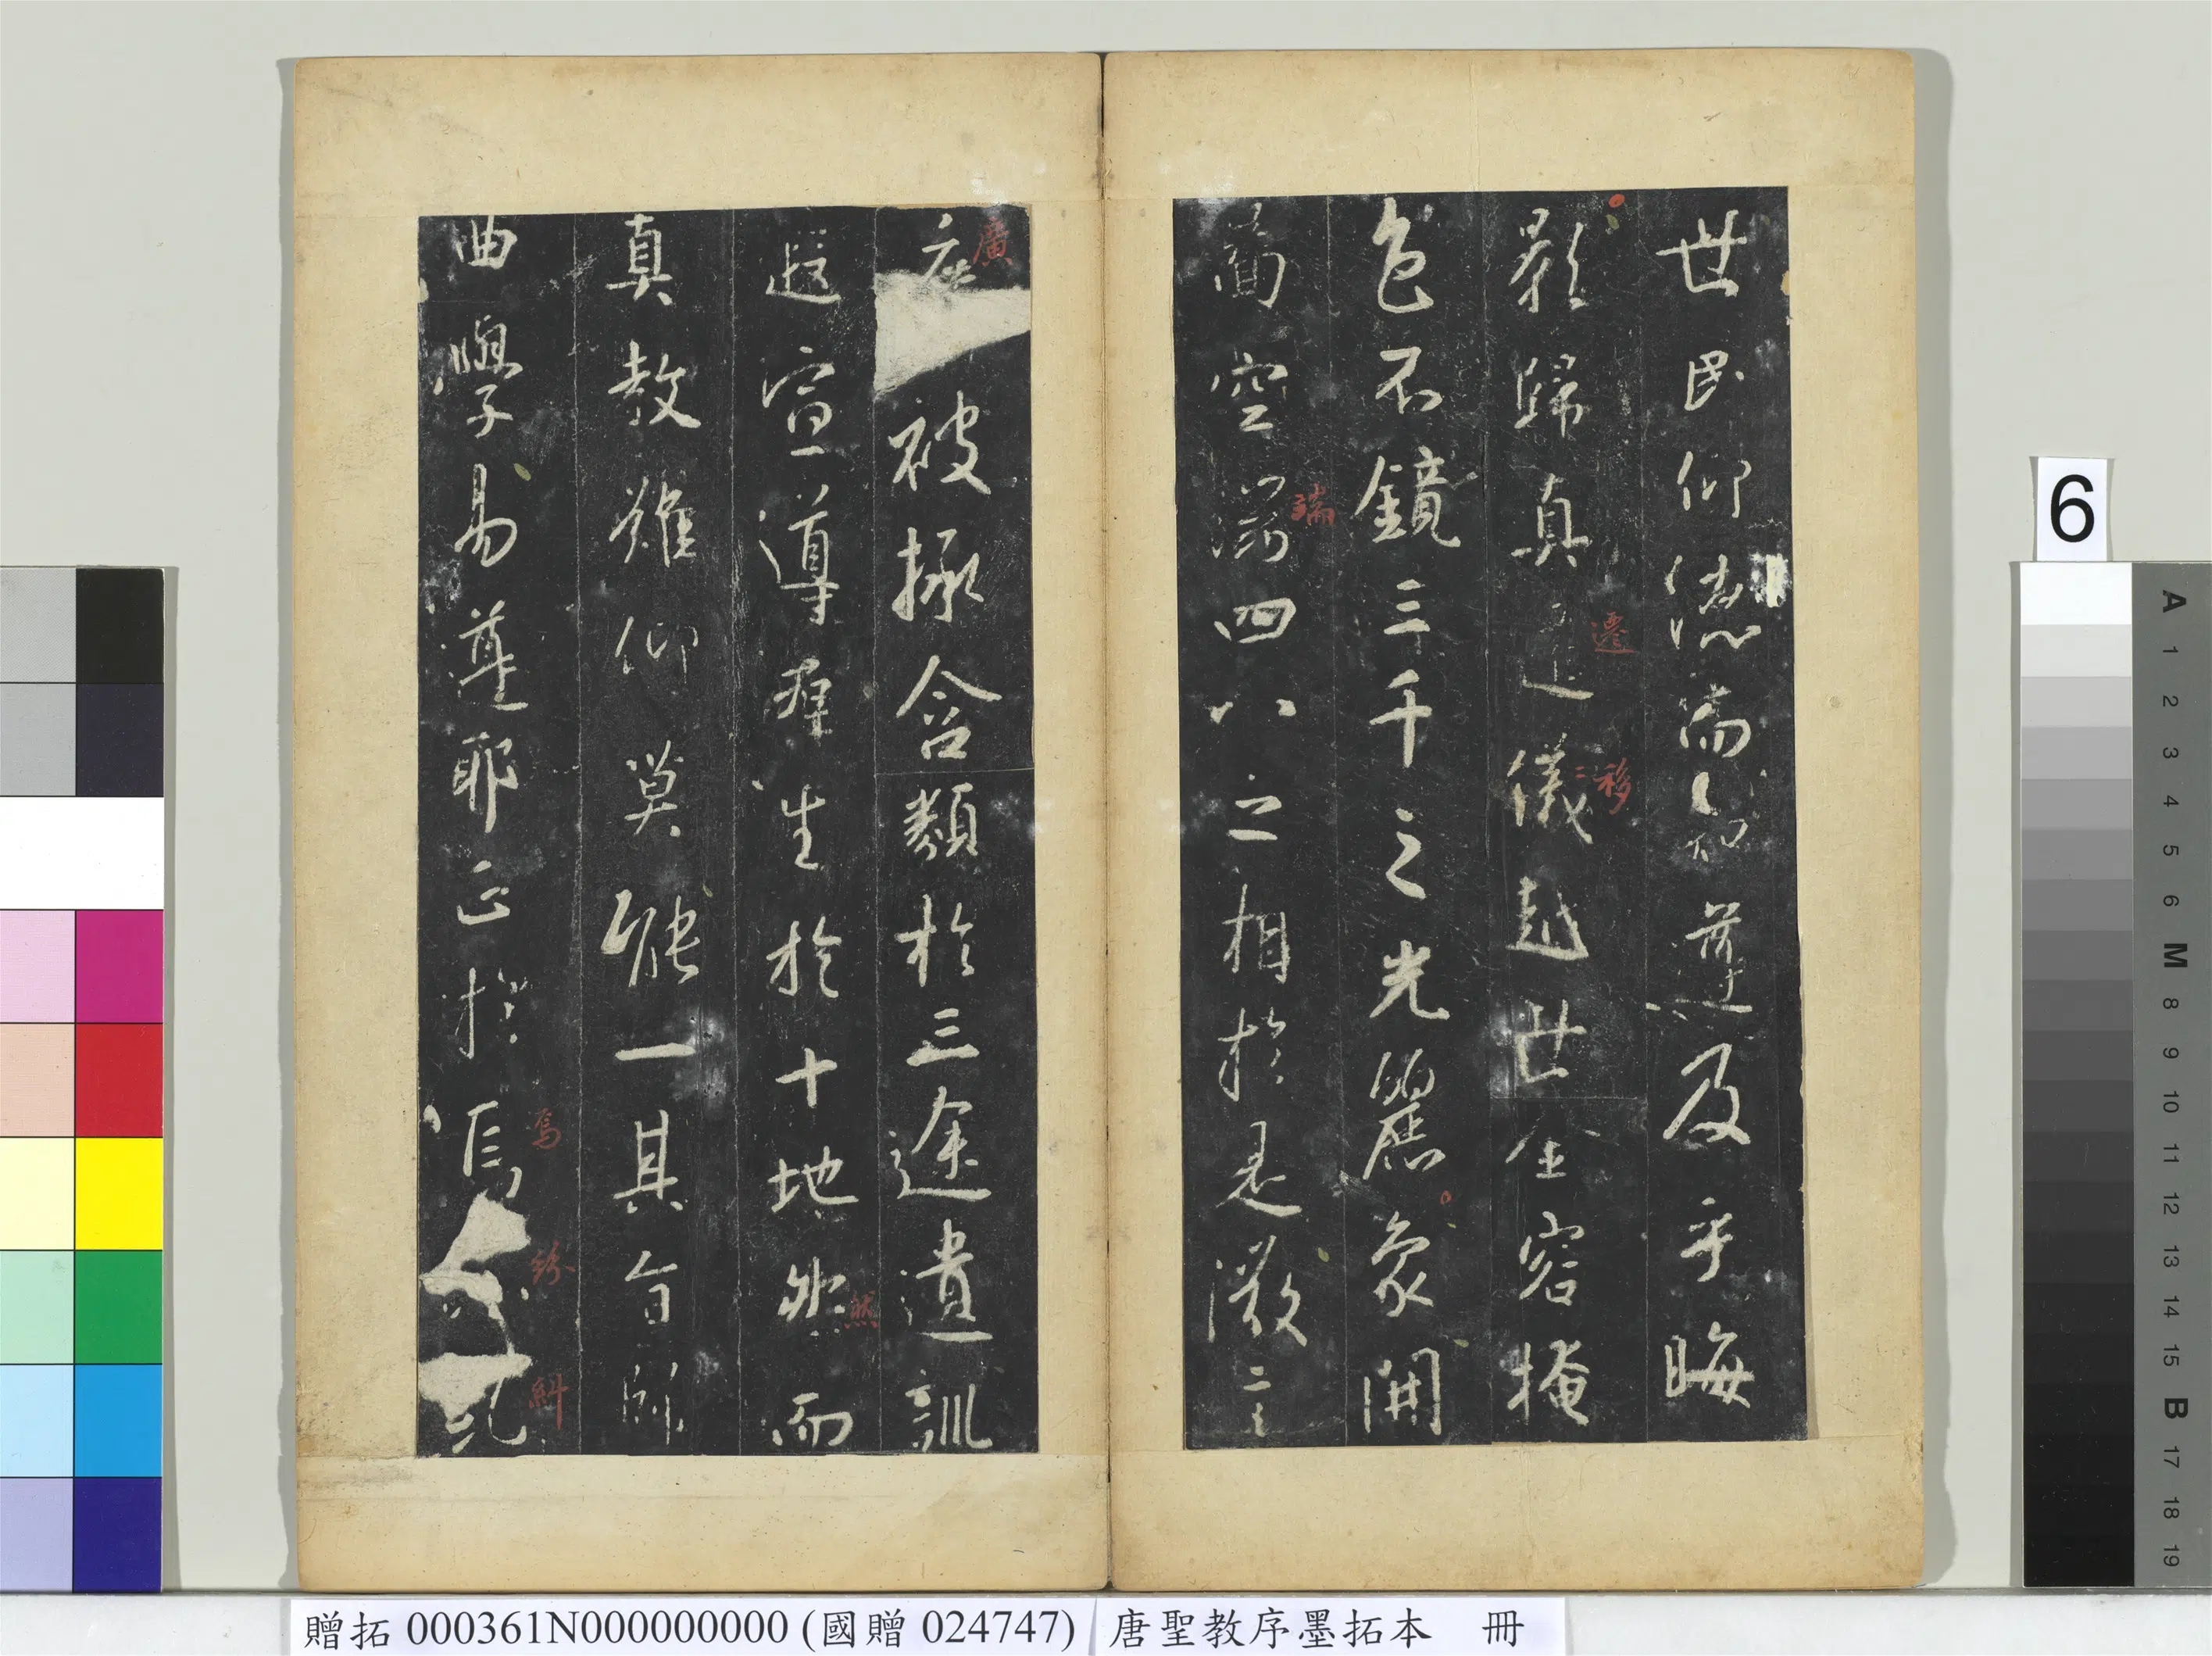 世民仰德而知遵及乎晦
影歸真遷儀越世金容掩
遷
移
色不鏡三千之光麗象開
圖空端四八之相於是微言
端
廣被拯含類於三途遺訓
廣
遐宣導群生於十地然而
然
真教難仰莫能一其旨歸
曲學易遵耶正於焉紛糾
焉
紛
糾
6
A 1 2 3 4 5 6 M 8 9 10 11 12 13 14 15 B 17 18 19
贈拓 000361N000000000 (國贈 024747) 唐聖教序墨拓本 冊